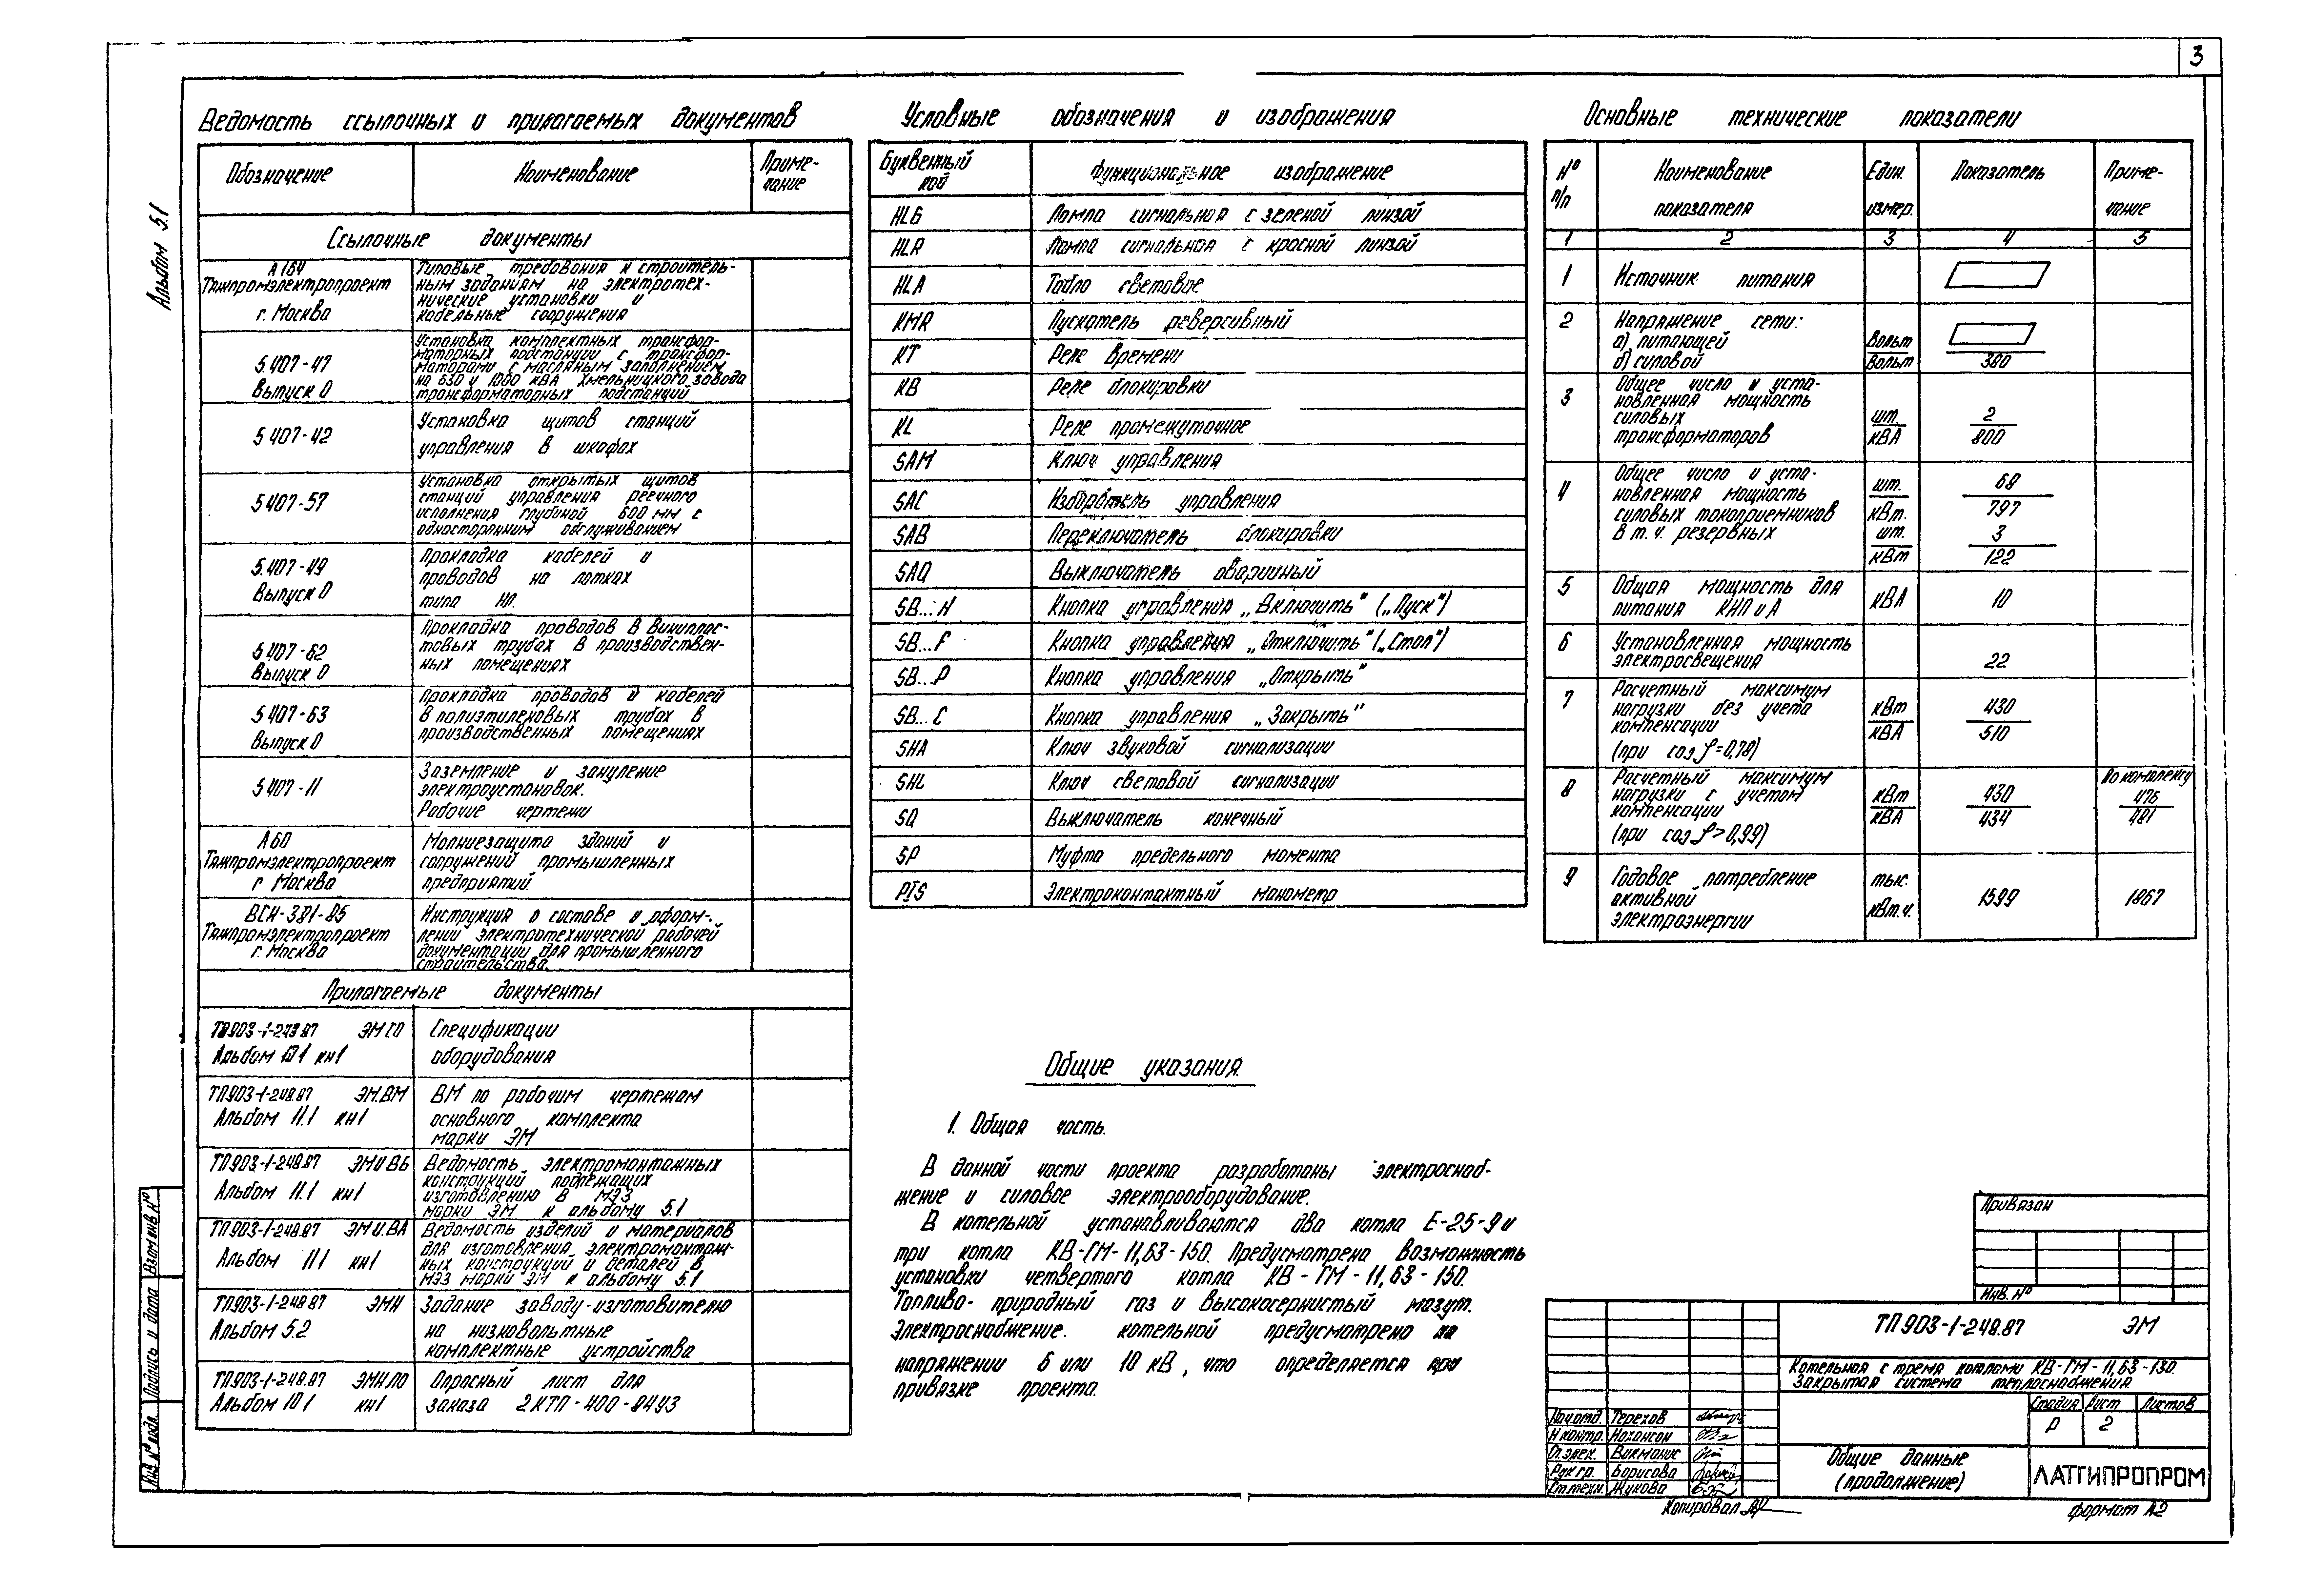 3
Альбом 5.1
Ведомость ссылочных и прилагаемых документов
Обозначение
Наименование
Приме-
чание
Ссылочные документы
А164
Тяжпромэлектропроект
г. Москва
Типовые требования к строитель-
ным заданиям на электротех-
нические установки и
кабельные сооружения
5.407-47
Выпуск 0
Установка комплектных трансфор-
маторных подстанции с трансфор-
маторами с масляным заполнением
на 630 и 1000 кВА Хмельницкого завода
трансформаторных подстанций
5 407-42
Установка щитов станций
управления в шкафах
5 407-57
Установка открытых щитов
станций управления реечного
исполнения глубиной 600 мм с
односторонним обслуживанием
5.407-49
Выпуск 0
Прокладка кабелей и
проводов на лотках
типа НЛ.
5 407-62
Выпуск 0
Прокладка проводов в виниплас-
товых трубах в производствен-
ных помещениях
5 407-63
Выпуск 0
Прокладка проводов и кабелей
в полиэтиленовых трубах в
производственных помещениях
5 407-11
Заземление и зануление
электроустановок.
Рабочие чертежи
А60
Тяжпромэлектропроект
г Москва
Молниезащита зданий и
сооружений промышленных
предприятий.
ВСН-381-85
Тяжпромэлектропроект
г. Москва
Инструкция о составе и оформ-
лении электротехнической рабочей
документации для промышленного
строительства.
Прилагаемые документы
ТП903-1-248.87 ЭМ СО
Альбом 10 1 кн1
Спецификации
оборудования
ТП903-1-248.87 ЭМ.ВМ
Альбом 11.1 кн1
ВМ по рабочим чертежам
основного комплекта
марки ЭМ
ТП903-1-248.87 ЭМИ ВБ
Альбом 11.1 кн1
Ведомость электромонтажных
конструкций подлежащих
изготовлению в МЭЗ
марки ЭМ к альбому 5.1
ТП903-1-248.87 ЭМИ.ВА
Альбом 11 1 кн1
Ведомость изделий и материалов
для изготовления электромонтаж-
ных конструкций и деталей в
МЭЗ марки ЭМ к альбому 5.1
ТП903-1-248 87 ЭМН
Альбом 5.2
Задание заводу-изготовителю
на низковольтные
комплектные устройства
ТП903-1-248.87 ЭМН ЛО
Альбом 10 1 кн1
Опросный лист для
заказа 2КТП-400-84У3
Условные обозначения и изображения
Буквенный
код
Функциональное изображение
HLG Лампа сигнальная с зеленой линзой
HLR Лампа сигнальная с красной линзой
HLA Табло световое
KMR Пускатель реверсивный
KT Реле времени
KB Реле блокировки
KL Реле промежуточное
SAM Ключ управления
SAC Избиратель управления
SAB Переключатель блокировки
SAQ Выключатель аварийный
SB...H Кнопка управления „Включить" („Пуск")
SB...F Кнопка управления „Отключить" („Стоп")
SB...P Кнопка управления „Открыть"
SB...C Кнопка управления „Закрыть"
SHA Ключ звуковой сигнализации
SHL Ключ световой сигнализации
SQ Выключатель конечный
SP Муфта предельного момента
PIS Электроконтактный манометр
Основные технические показатели
№
п/п
Наименование
показателя
Един.
измер.
Показатель
Приме-
чание
1 2 3 4 5
1 Источник питания
2 Напряжение сети:
а) питающей Вольт
б) силовой Вольт 380
3 Общее число и уста-
новленная мощность
силовых шт. 2
трансформаторов кВА 800
4 Общее число и уста-
новленная мощность шт. 68
силовых токоприемников кВт. 797
в т. ч. резервных шт. 3
кВт 122
5 Общая мощность для
питания КИП и А кВА 10
6 Установленная мощность
электросвещения 22
7 Расчетный максимум
нагрузки без учета кВт 430
компенсации кВА 510
(при cos φ=0,78)
8 Расчетный максимум По комплексу
нагрузки с учетом кВт 430 476
компенсации кВА 434 481
(при cos φ>0,99)
9 Годовое потребление тыс.
активной кВт.ч. 1599 1867
электроэнергии
Общие указания.
1. Общая часть.
В данной части проекта разработаны электроснаб-
жение и силовое электрооборудование.
В котельной устанавливаются два котла Е-25-9 и
три котла КВ-ГМ-11,63-150. Предусмотрена возможность
установки четвертого котла КВ-ГМ-11,63-150.
Топливо- природный газ и высокосернистый мазут.
Электроснабжение. котельной предусмотрено на
напряжении 6 или 10 кВ, что определяется при
привязке проекта.
Привязан
Инв. №
ТП 903-1-248.87 ЭМ
Котельная с тремя котлами КВ-ГМ-11,63-150.
Закрытая система теплоснабжения
Стадия Лист Листов
Р 2
Общие данные
(продолжение)
ЛАТГИПРОПРОМ
Нач.отд. Терехов
Н контр. Нахансон
Гл.элек. Викманис
Рук гр. Борисова
Ст.техн. Жукова
Копировал
формат А2
Взам инв №
Подпись и дата
Инв № подл.